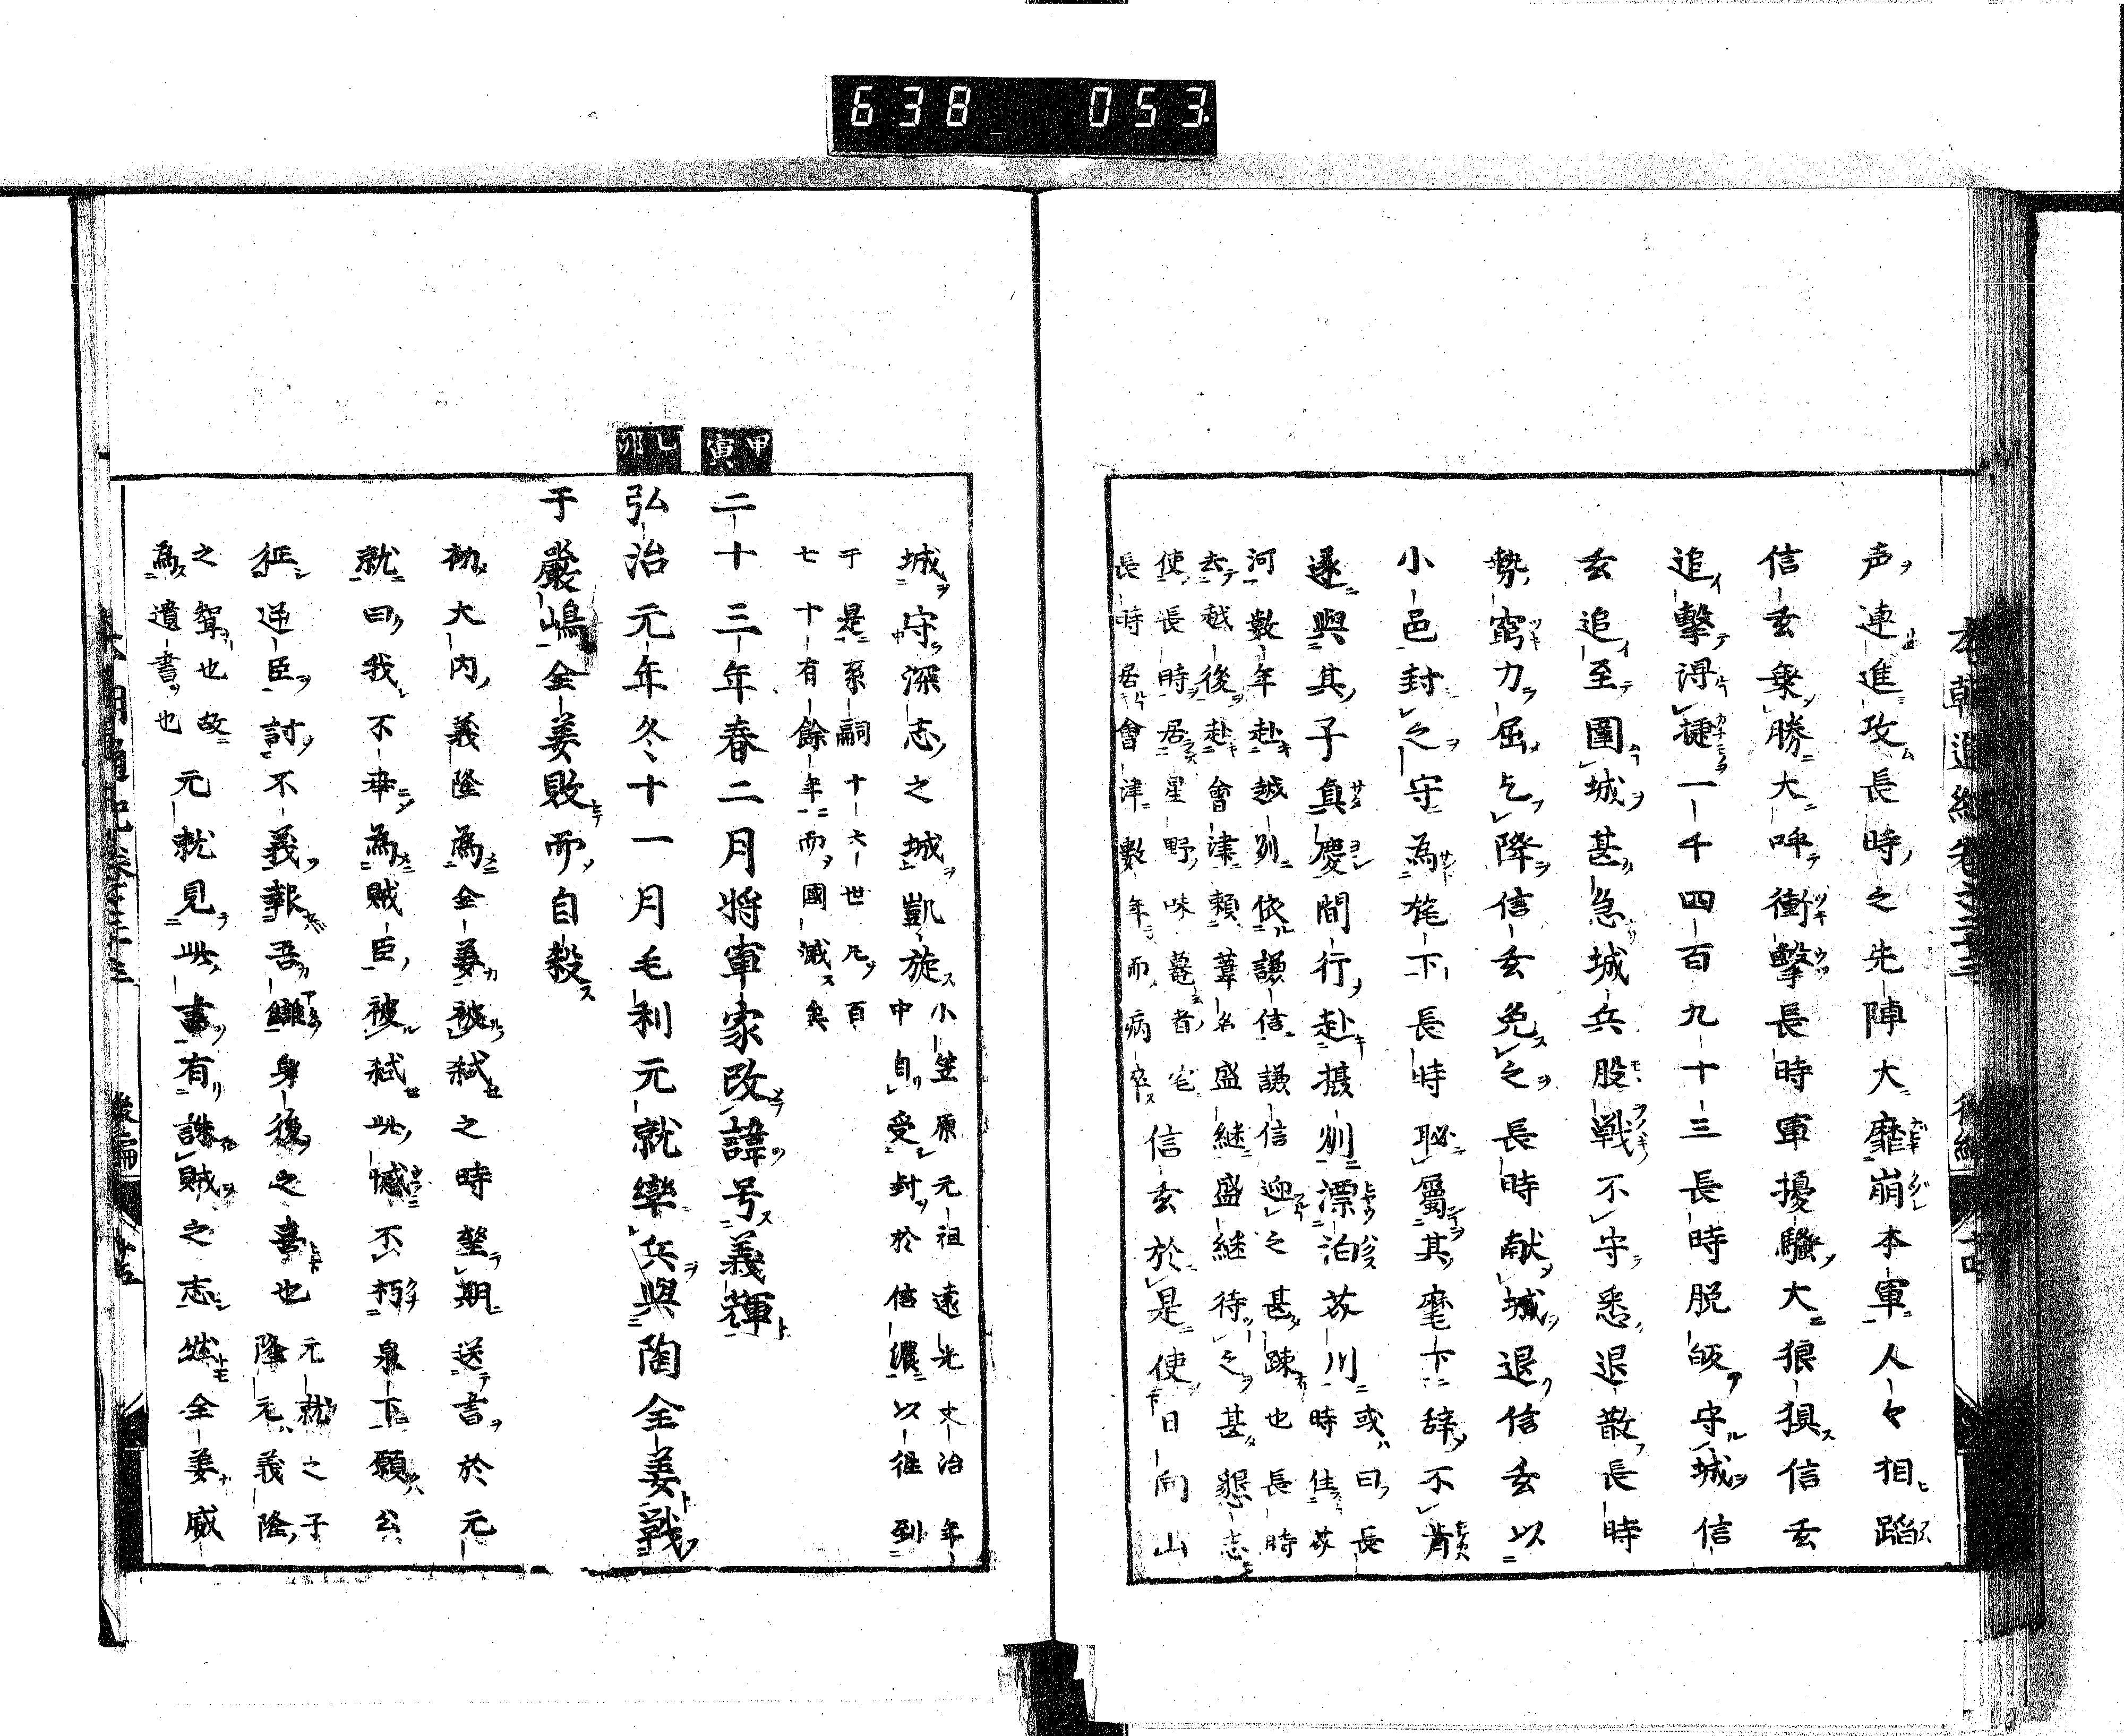 638 053
声連進攻長時之先陣大靡崩本軍人々相蹈
信玄乗勝大呼衝撃長時軍擾騒大狼狽信玄
追撃得捷一千四百九十三長時脱皈守城信
玄追至圍城甚急城兵股戦不守悉退散長時
勢窮力屈乞降信玄免之長時献城退信玄以
小邑封之守為旄下長時恥屬其麾下辞不肯
遂與其子真慶間行赴摂刕漂泊芥川
或曰長時住芥
河數年赴越刕依謙信謙信迎之甚踈也長時
去越後赴會津頼葦名盛継盛継待之甚懇志
使長時居星野味菴者宅
長時居會津數年而病卒
信玄於是使日向山
城守守深志之城凱旋
小笠原元祖遠光文治年
中自受封於信濃以往到
于是系嗣十六世凡百
七十有餘年而國滅矣
甲寅
二十三年春二月将軍家改諱号義輝
乙卯
弘治元年冬十一月毛利元就挙兵與陶全姜戦
于嚴嶋全姜敗而自殺
初大内義隆為全姜被弑之時堅期送書於元
就曰我不幸為賊臣被弑此憾不朽泉下願公
征逆臣討不義報吾讎身後之喜也
元就之子
隆元義隆
之聟也故
為遺書也
元就見此書有誅賊之志然全姜威